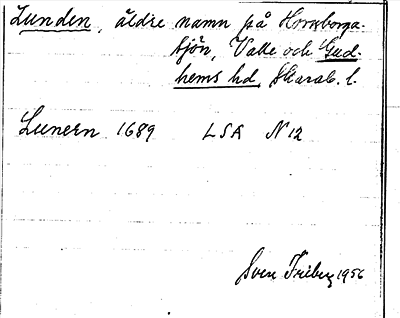 Lunden, äldre namn på Hornborga-
sjön, Valle och Gud-
hems hd, Skarab. l.
Lunern 1689 LSA N 12
Sven Friberg 1956